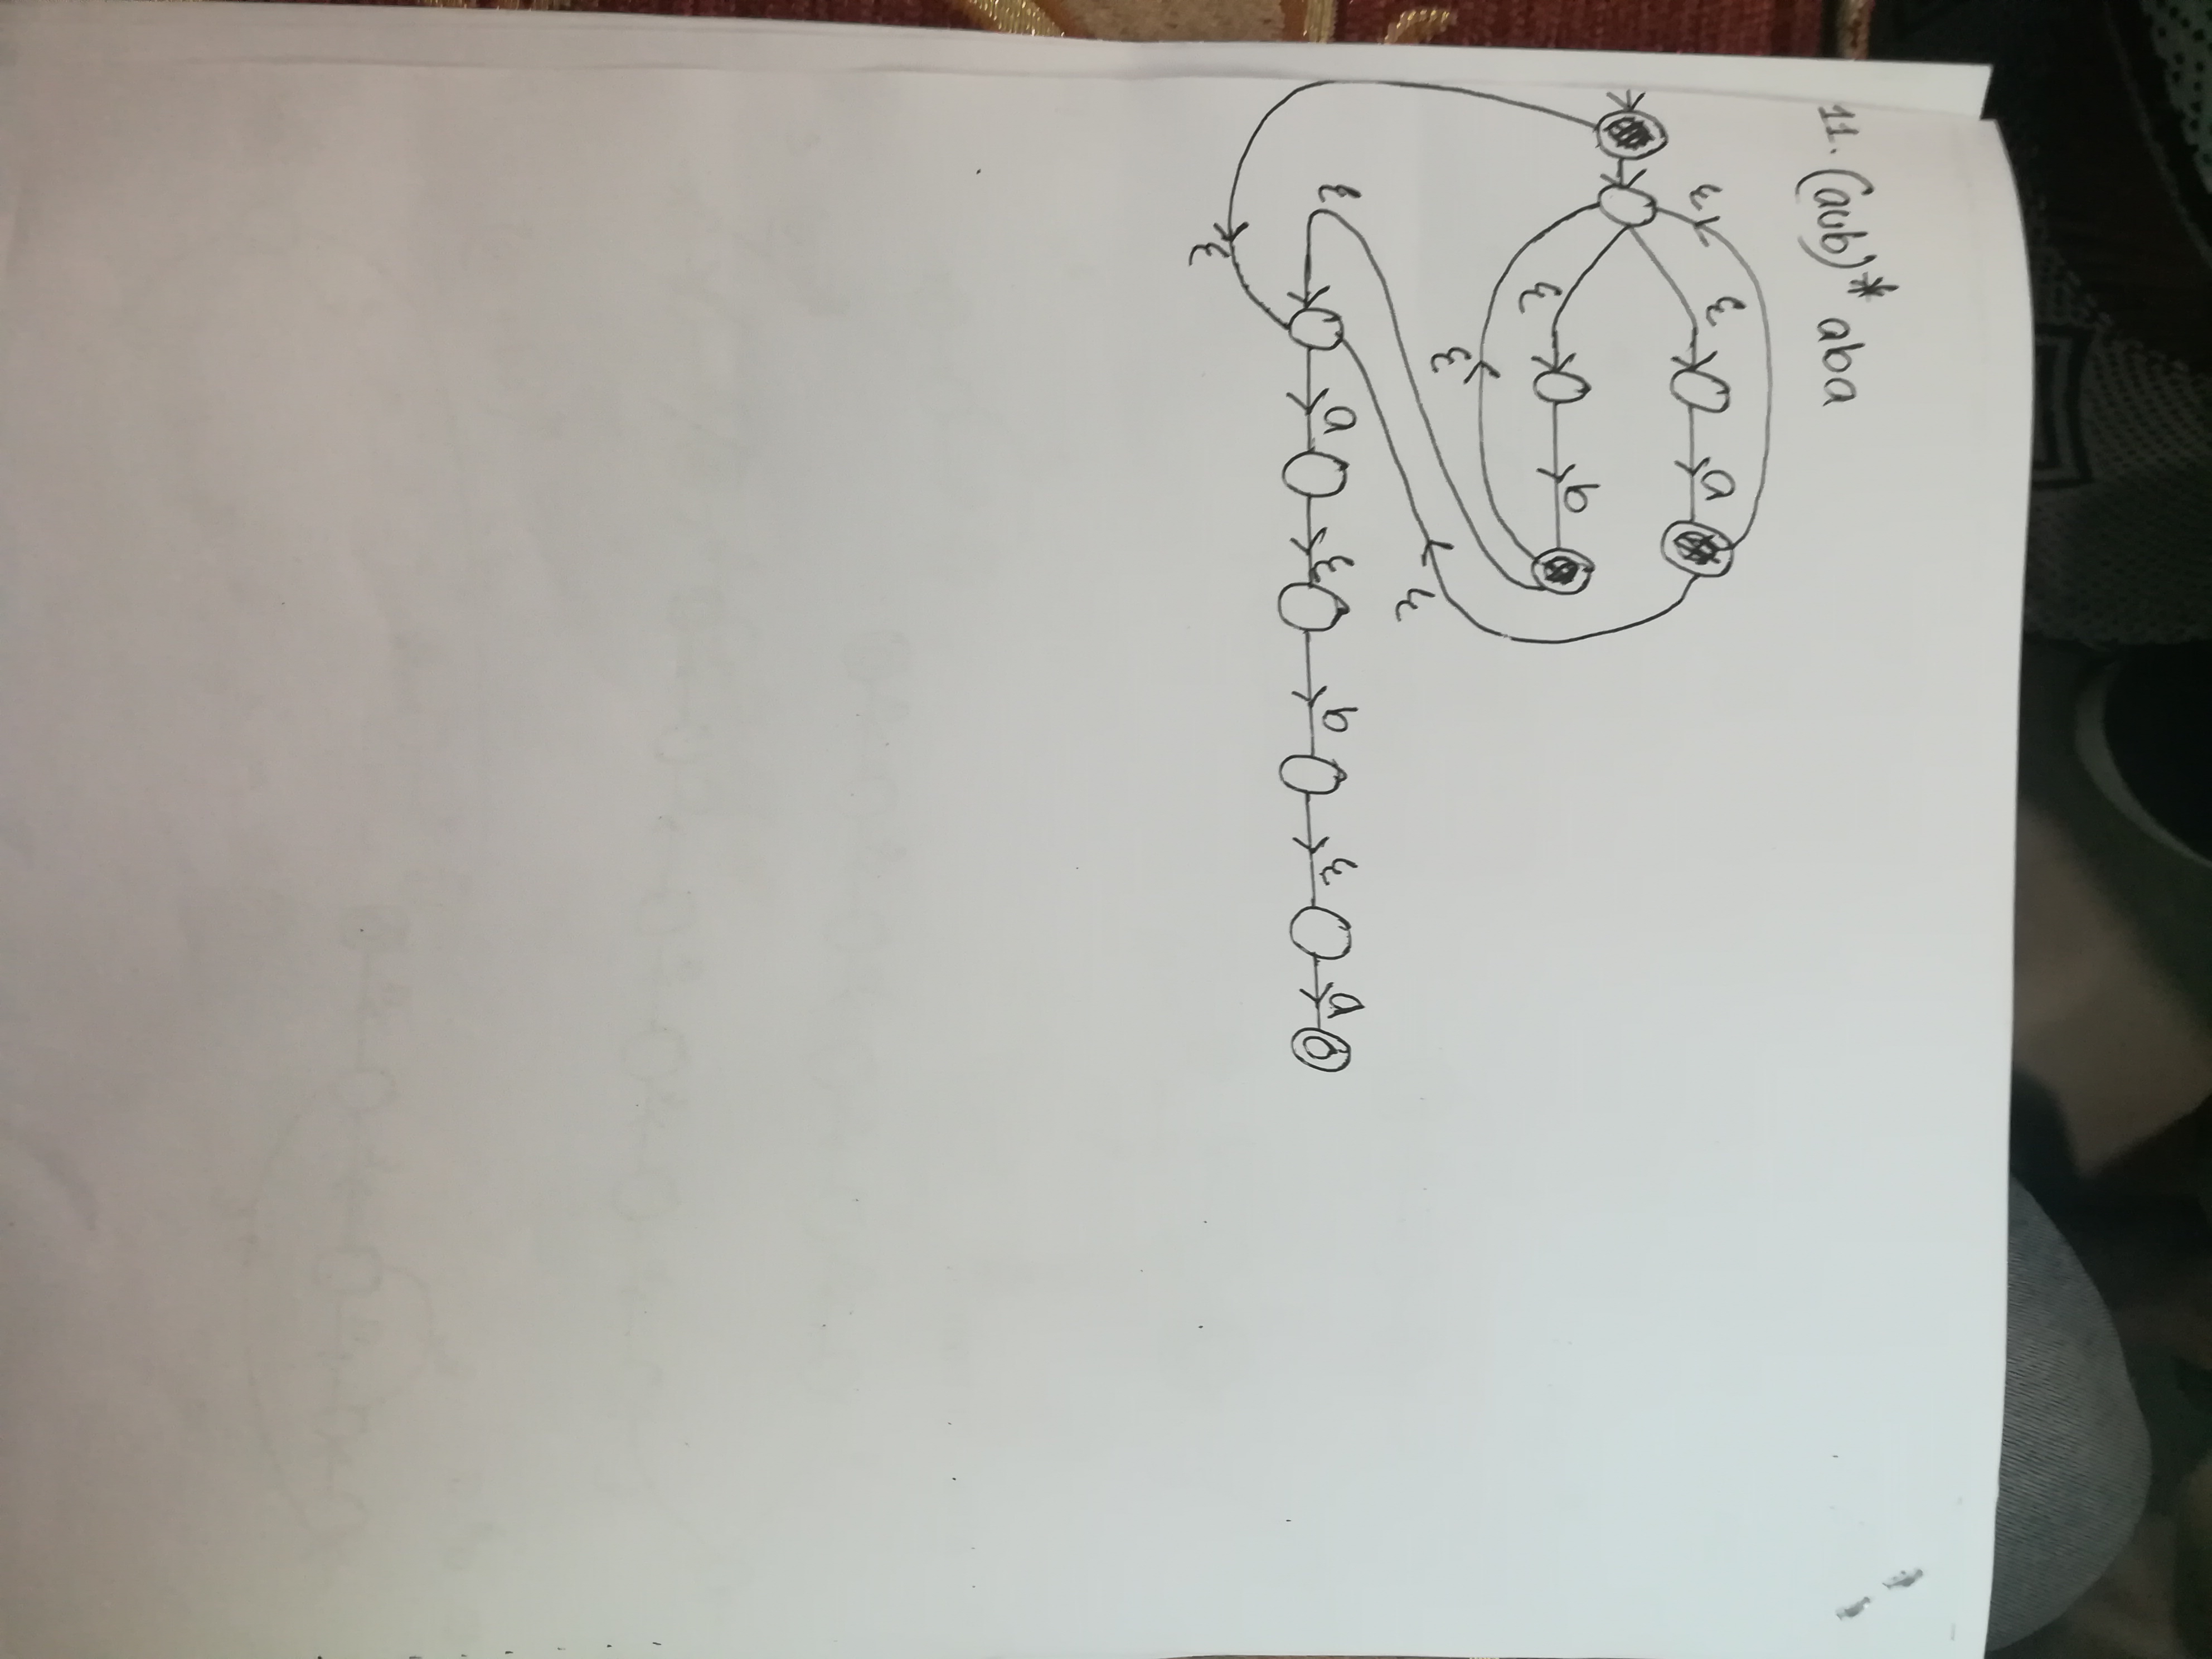 11. (a∪b)* aba
ε ε a
ε b
ε
ε
ε a ε b ε a
ε